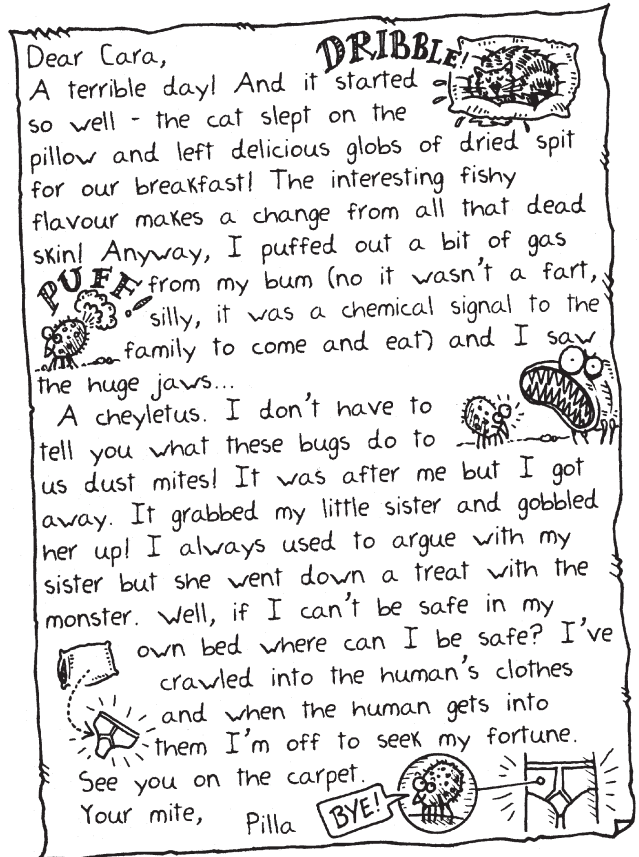 Dear Cara,
DRIBBLE!
A terrible day! And it started
so well - the cat slept on the
pillow and left delicious globs of dried spit
for our breakfast! The interesting fishy
flavour makes a change from all that dead
skin! Anyway, I puffed out a bit of gas
PUFF!
from my bum (no it wasn't a fart,
silly, it was a chemical signal to the
family to come and eat) and I saw
the huge jaws...
A cheyletus. I don't have to
tell you what these bugs do to
us dust mites! It was after me but I got
away. It grabbed my little sister and gobbled
her up! I always used to argue with my
sister but she went down a treat with the
monster. Well, if I can't be safe in my
own bed where can I be safe? I've
crawled into the human's clothes
and when the human gets into
them I'm off to seek my fortune.
See you on the carpet.
Your mite,
Pilla
BYE!